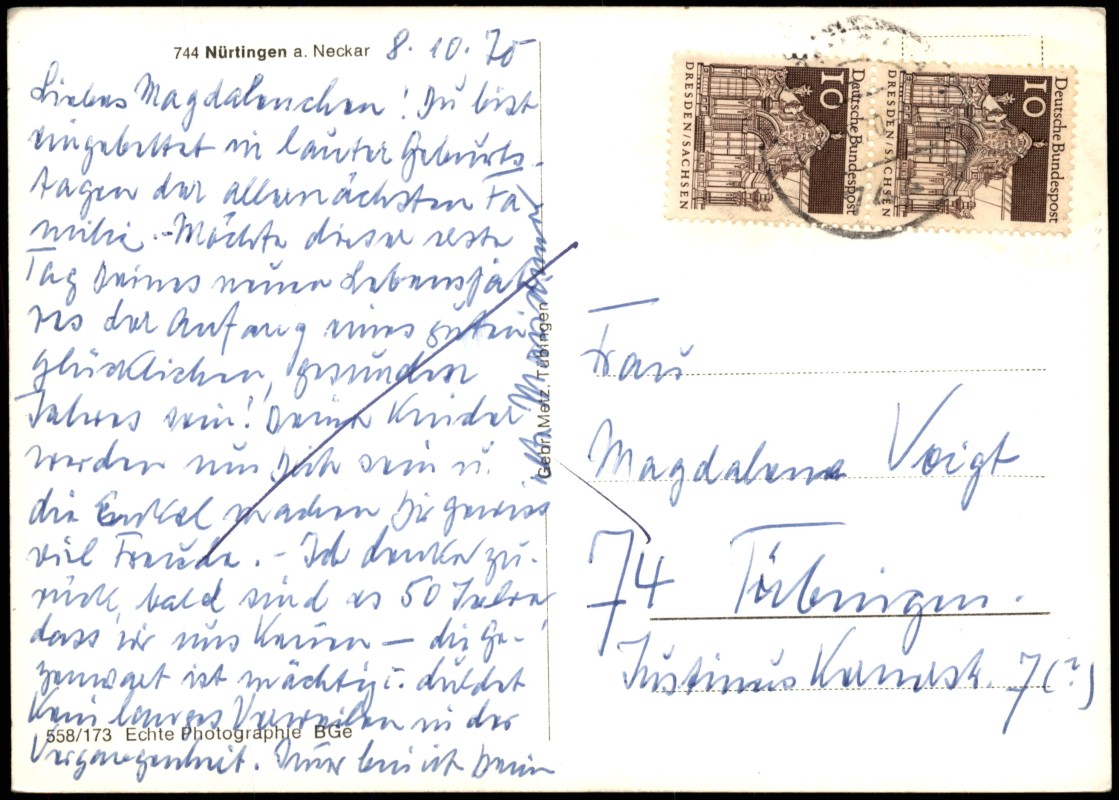 744 Nürtingen a. Neckar 8. 10. 70
Liebes Magdalenchen! Du bist
eingebettet in lauter Geburts-
tagen der allernächsten Fa
milie. - Möchte dieser erste
Tag Deines neuen Lebensjah
res der Anfang eines guten
glücklichen, gesunden
Jahres sein! Deine Kinder
werden um Dich sein u.
die Enkel machen Dir gewiss
viel Freude. - Ich denke zu-
rück, bald sind es 50 Jahre
dass wir uns kennen — die Ge-
genwart ist mächtig u. duldet
kein langes Verweilen in der
Vergangenheit. Immer bin ich Deine
558/173 Echte Photographie BGe
Gebr. Metz, Tübingen
10
Deutsche Bundespost
DRESDEN/SACHSEN
10
Deutsche Bundespost
DRESDEN/SACHSEN
Frau
Magdalena Voigt
74 Tübingen.
Justinus Kernerstr. 7(?)